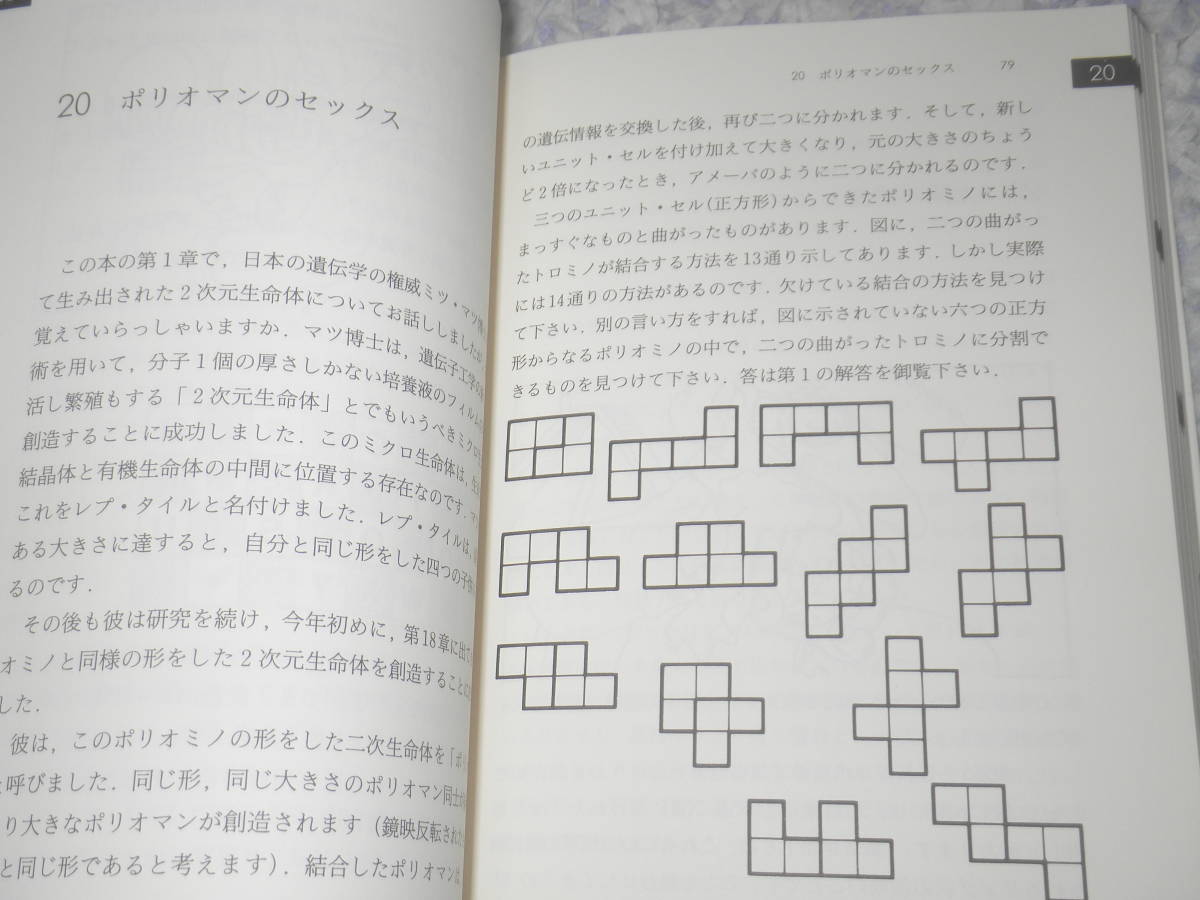 20 ポリオマンのセックス
この本の第1章で，日本の遺伝学の権威ミツ・マツ博
て生み出された2次元生命体についてお話ししましたが
覚えていらっしゃいますか．マツ博士は，遺伝子工学の
術を用いて，分子1個の厚さしかない培養液のフィルム
活し繁殖もする「2次元生命体」とでもいうべきミクロ
創造することに成功しました．このミクロ生命体は，
結晶体と有機生命体の中間に位置する存在なのです．マ
これをレプ・タイルと名付けました．レプ・タイルは，
ある大きさに達すると，自分と同じ形をした四つの子
るのです．
その後も彼は研究を続け，今年初めに，第18章に出て
オミノと同様の形をした2次元生命体を創造することに
した．
彼は，このポリオミノの形をした二次生命体を「ポリ
と呼びました．同じ形，同じ大きさのポリオマン同士が
り大きなポリオマンが創造されます（鏡映反転された
と同じ形であると考えます）．結合したポリオマンは
20 ポリオマンのセックス 79
20
の遺伝情報を交換した後，再び二つに分かれます．そして，新し
いユニット・セルを付け加えて大きくなり，元の大きさのちょう
ど2倍になったとき，アメーバのように二つに分かれるのです．
三つのユニット・セル(正方形)からできたポリオミノには，
まっすぐなものと曲がったものがあります．図に，二つの曲がっ
たトロミノが結合する方法を13通り示してあります．しかし実際
には14通りの方法があるのです．欠けている結合の方法を見つけ
て下さい．別の言い方をすれば，図に示されていない六つの正方
形からなるポリオミノの中で，二つの曲がったトロミノに分割で
きるものを見つけて下さい．答は第1の解答を御覧下さい．